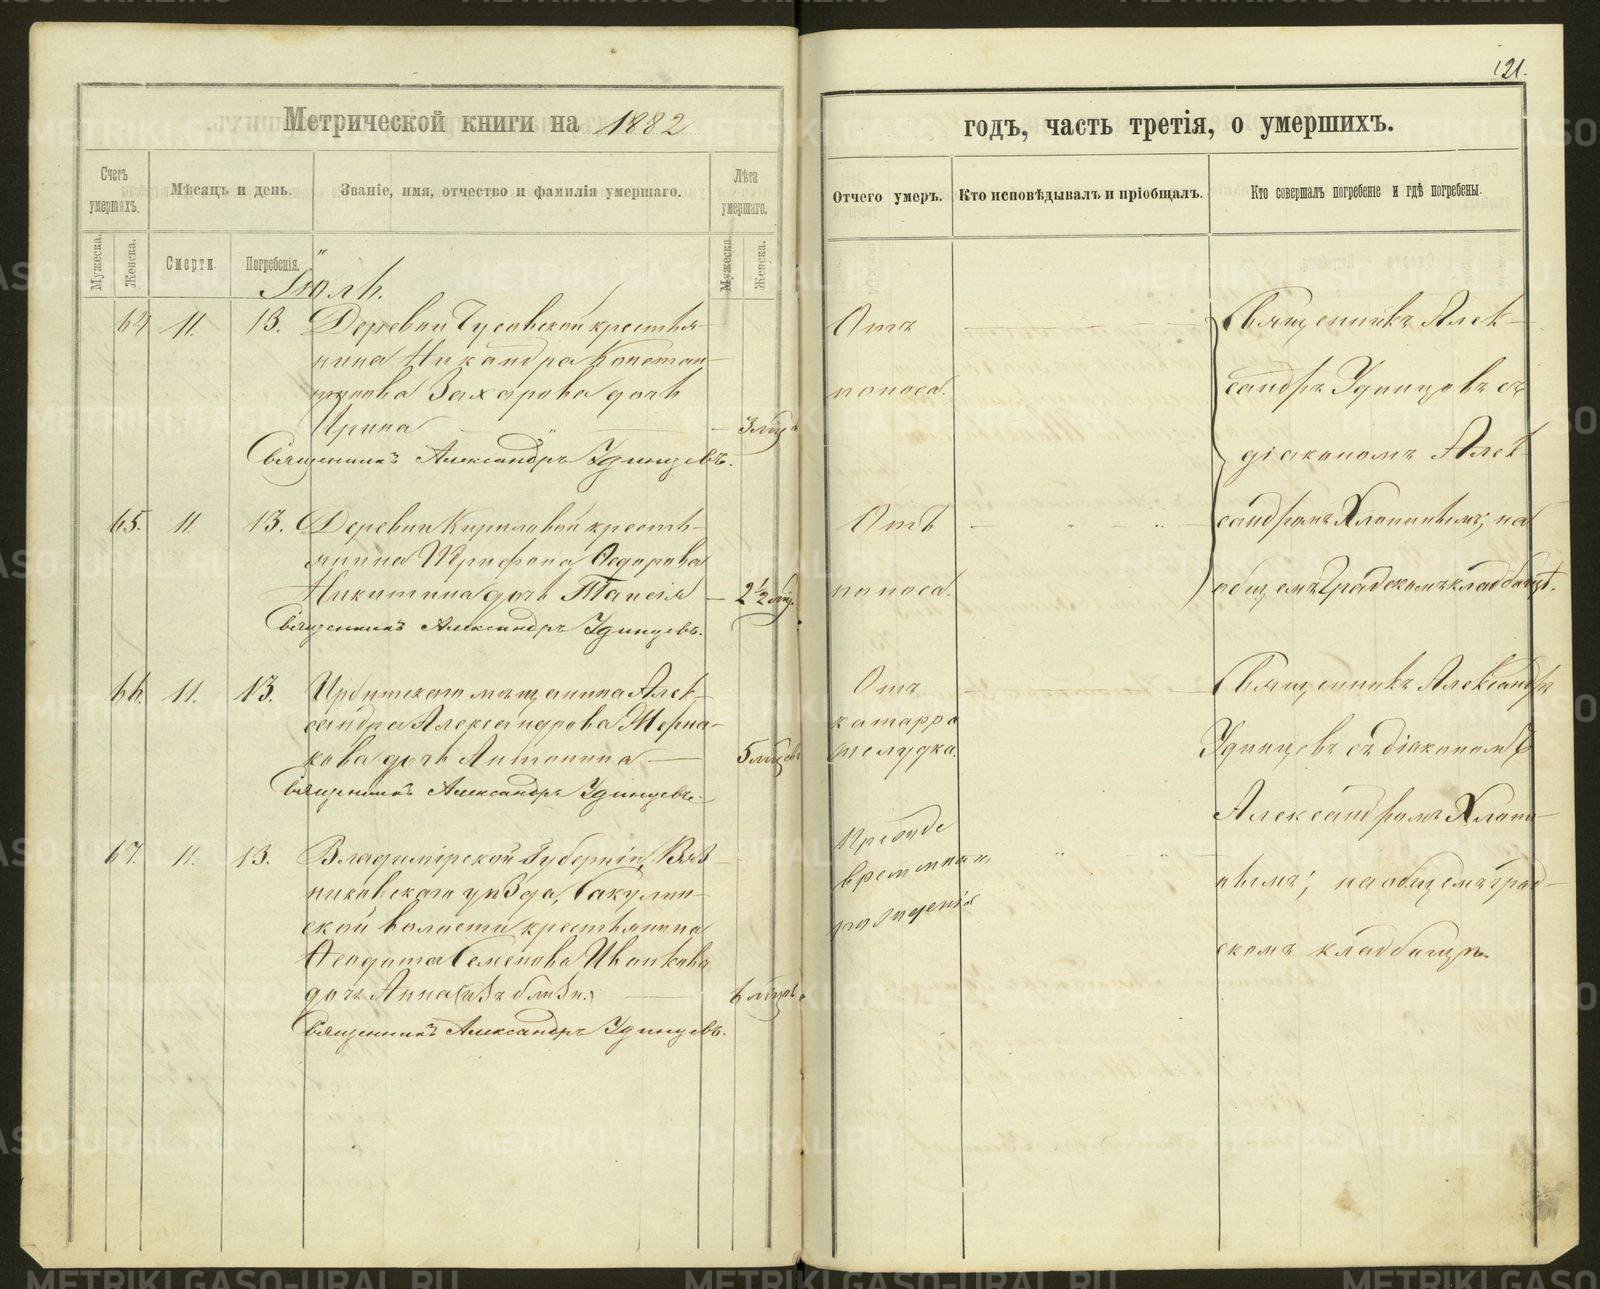 121.
Метрической книги на 1882
годъ, часть третія, о умершихъ.
Счетъ умершихъ.
Мѣсяцъ и день.
Званіе, имя, отчество и фамилія умершаго.
Лѣта умершаго.
Отчего умеръ.
Кто исповѣдывалъ и пріобщалъ.
Кто совершалъ погребеніе и гдѣ погребены.
Мужеска.
Женска.
Смерти.
Погребенія.
Мужеска.
Женска.
Іюль.
64 11. 13. Деревни Чусовской крестья-
нина Никандра Констан-
тинова Захарова дочь
Ирина 3 мѣс
Священникъ Александръ Удинцевъ.
Отъ
поноса.
Священникъ Алек-
сандръ Удинцовъ съ
діакономъ Алек-
сандромъ Хлопинымъ, на
общемъ градскомъ кладбищѣ.
65. 11. 13. Деревни Кириловой кресть-
янина Трифона Ѳедорова
Никитина дочь Таисія 2 1/2 мѣс.
Священникъ Александръ Удинцевъ.
Отъ
поноса.
66. 11. 13. Ирбитскаго мѣщанина Алек-
сандра Александрова Жерна-
кова дочь Антонина 5 мѣсцевъ
Священникъ Александръ Удинцевъ.
Отъ
катарра
желудка.
Священникъ Александръ
Удинцевъ съ діакономъ
Александромъ Хлопи-
нымъ, на общемъ град-
скомъ кладбищѣ.
67. 11. 13. Владимірской Губерніи, Вяз-
никовскаго уѣзда, Сакулин-
ской волости крестьянина
Ѳеодота Семенова Ивонкова
дочь Анна (изъ близн.) 6 мѣсцевъ.
Священникъ Александръ Удинцевъ.
Прежде
временнаго
рожденія
METRIKI.GASO-URAL.RU